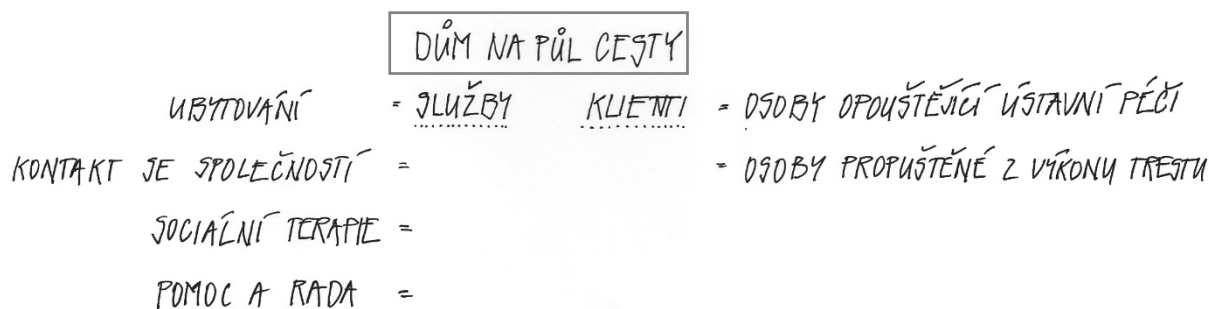 DŮM NA PŮL CESTY
UBYTOVÁNÍ = SLUŽBY KLIENTI = OSOBY OPOUŠTĚJÍCÍ ÚSTAVNÍ PÉČI
KONTAKT SE SPOLEČNOSTÍ = = OSOBY PROPUŠTĚNÉ Z VÝKONU TRESTU
SOCIÁLNÍ TERAPIE =
POMOC A RADA =